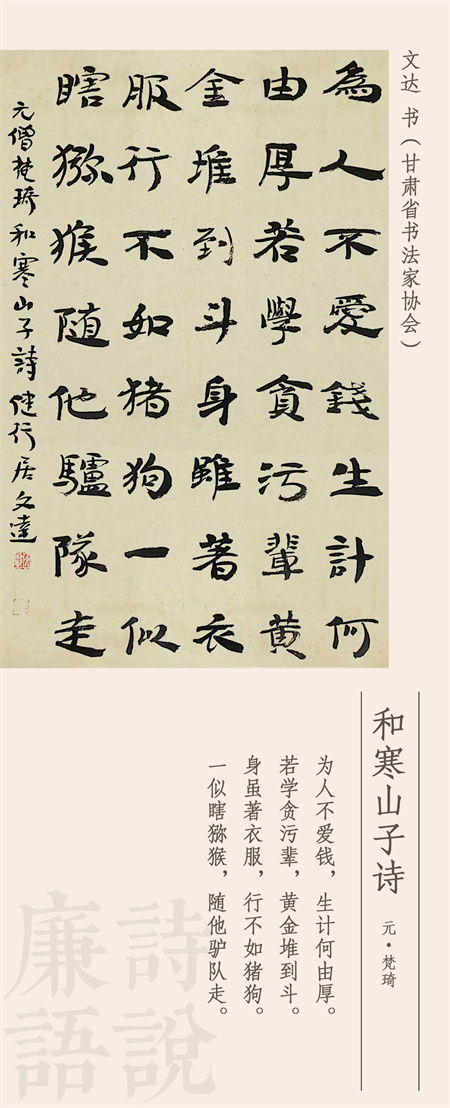 文达 书（甘肃省书法家协会）
為人不愛錢生計何
由厚若學貪污輩黄
金堆到斗身雖著衣
服行不如猪狗一似
瞎猕猴随他驢隊走
元僧梵琦和寒山子詩 健行居文達
和寒山子诗
元·梵琦
为人不爱钱，生计何由厚。
若学贪污辈，黄金堆到斗。
身虽著衣服，行不如猪狗。
一似瞎猕猴，随他驴队走。
詩說
廉語